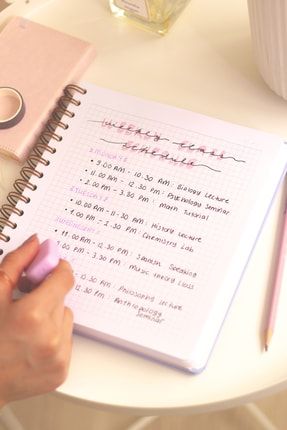 weekly class
schedule
• 9.00 AM - 10.30 AM: Biology Lecture
• 11.00 AM - 12.30 PM: Psychology Seminar
• 2.00 PM - 3.30 PM: Math Tutorial
TUESDAY:
• 10.00 AM - 11.30 AM: History Lecture
• 1.00 PM - 2.30 PM: Chemistry Lab
WEDNESDAY:
• 11.00 AM - 12.30 PM: Spanish Speaking
PM - 3.30 PM: Music Theory Class
10.30 AM: Philosophy Lecture
12.30 PM: Anthropology
Seminar